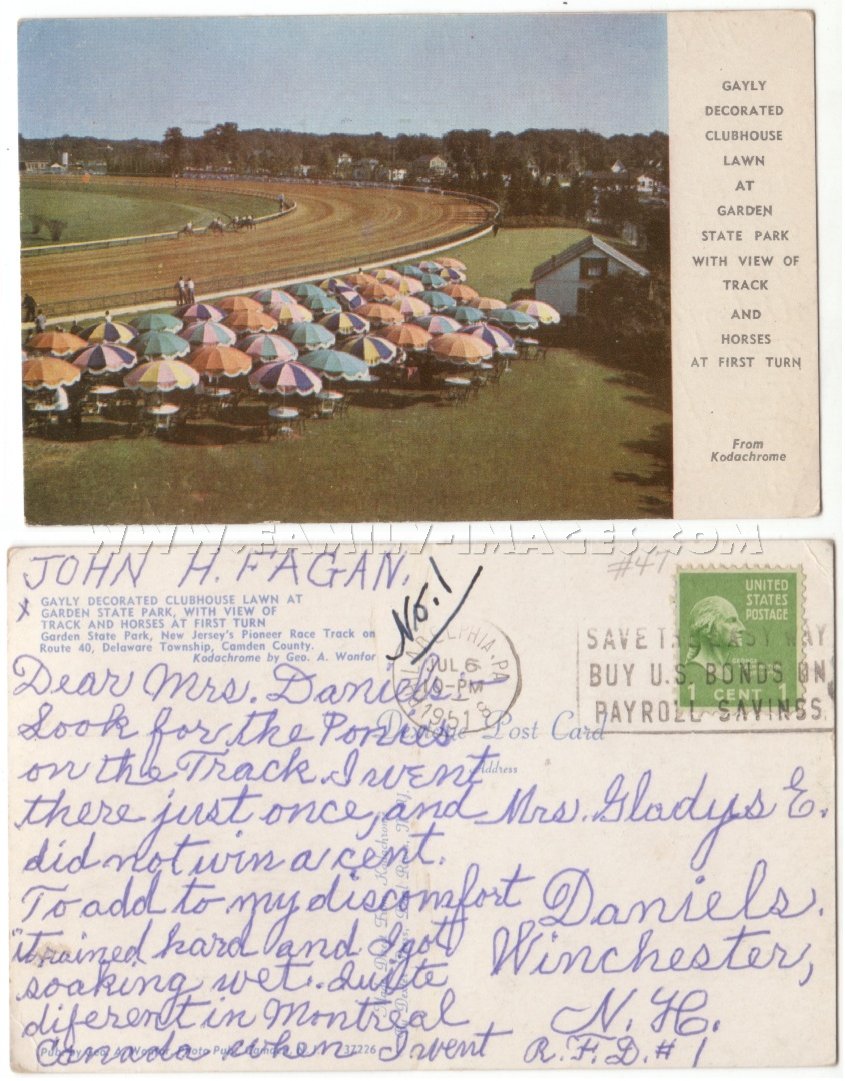 GAYLY
DECORATED
CLUBHOUSE
LAWN
AT
GARDEN
STATE PARK
WITH VIEW OF
TRACK
AND
HORSES
AT FIRST TURN
From
Kodachrome
WWW.FAMILY-IMAGES.COM
JOHN H. FAGAN.
No. 1
#47
X GAYLY DECORATED CLUBHOUSE LAWN AT
GARDEN STATE PARK, WITH VIEW OF
TRACK AND HORSES AT FIRST TURN
Garden State Park, New Jersey's Pioneer Race Track on
Route 40, Delaware Township, Camden County.
Kodachrome by Geo. A. Wonfor
PHILADELPHIA, PA.
JUL 6
10-PM
1951
SAVE THE EASY WAY
BUY U.S. BONDS ON
PAYROLL SAVINGS
UNITED
STATES
POSTAGE
GEORGE WASHINGTON
1 CENT 1
Dear Mrs. Daniels
Look for the Ponies
on the Track. I went
there just once, and
did not win a cent.
To add to my discomfort
it rained hard and I got
soaking wet. Quite
diferent in Montreal
Canada when I went
Post Card
Address
Mrs. Gladys E.
Daniels.
Winchester,
N. H.
R.F.D. #1
37226